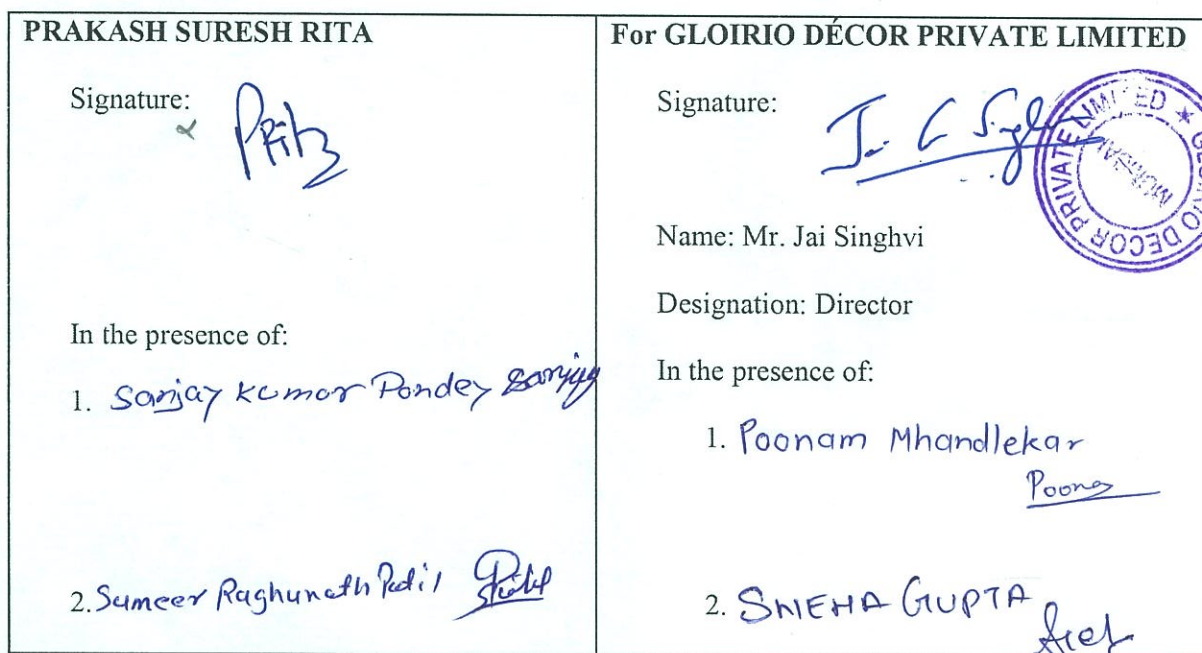 PRAKASH SURESH RITA
Signature:
PRita
In the presence of:
1. Sanjay Kumar Pandey Sanjay
2. Sameer Raghunath Patil
For GLOIRIO DÉCOR PRIVATE LIMITED
Signature:
PRIVATE LIMITED ★
DECOR
MUMBAI
Name: Mr. Jai Singhvi
Designation: Director
In the presence of:
1. Poonam Mhandlekar
Poonam
2. SNEHA GUPTA